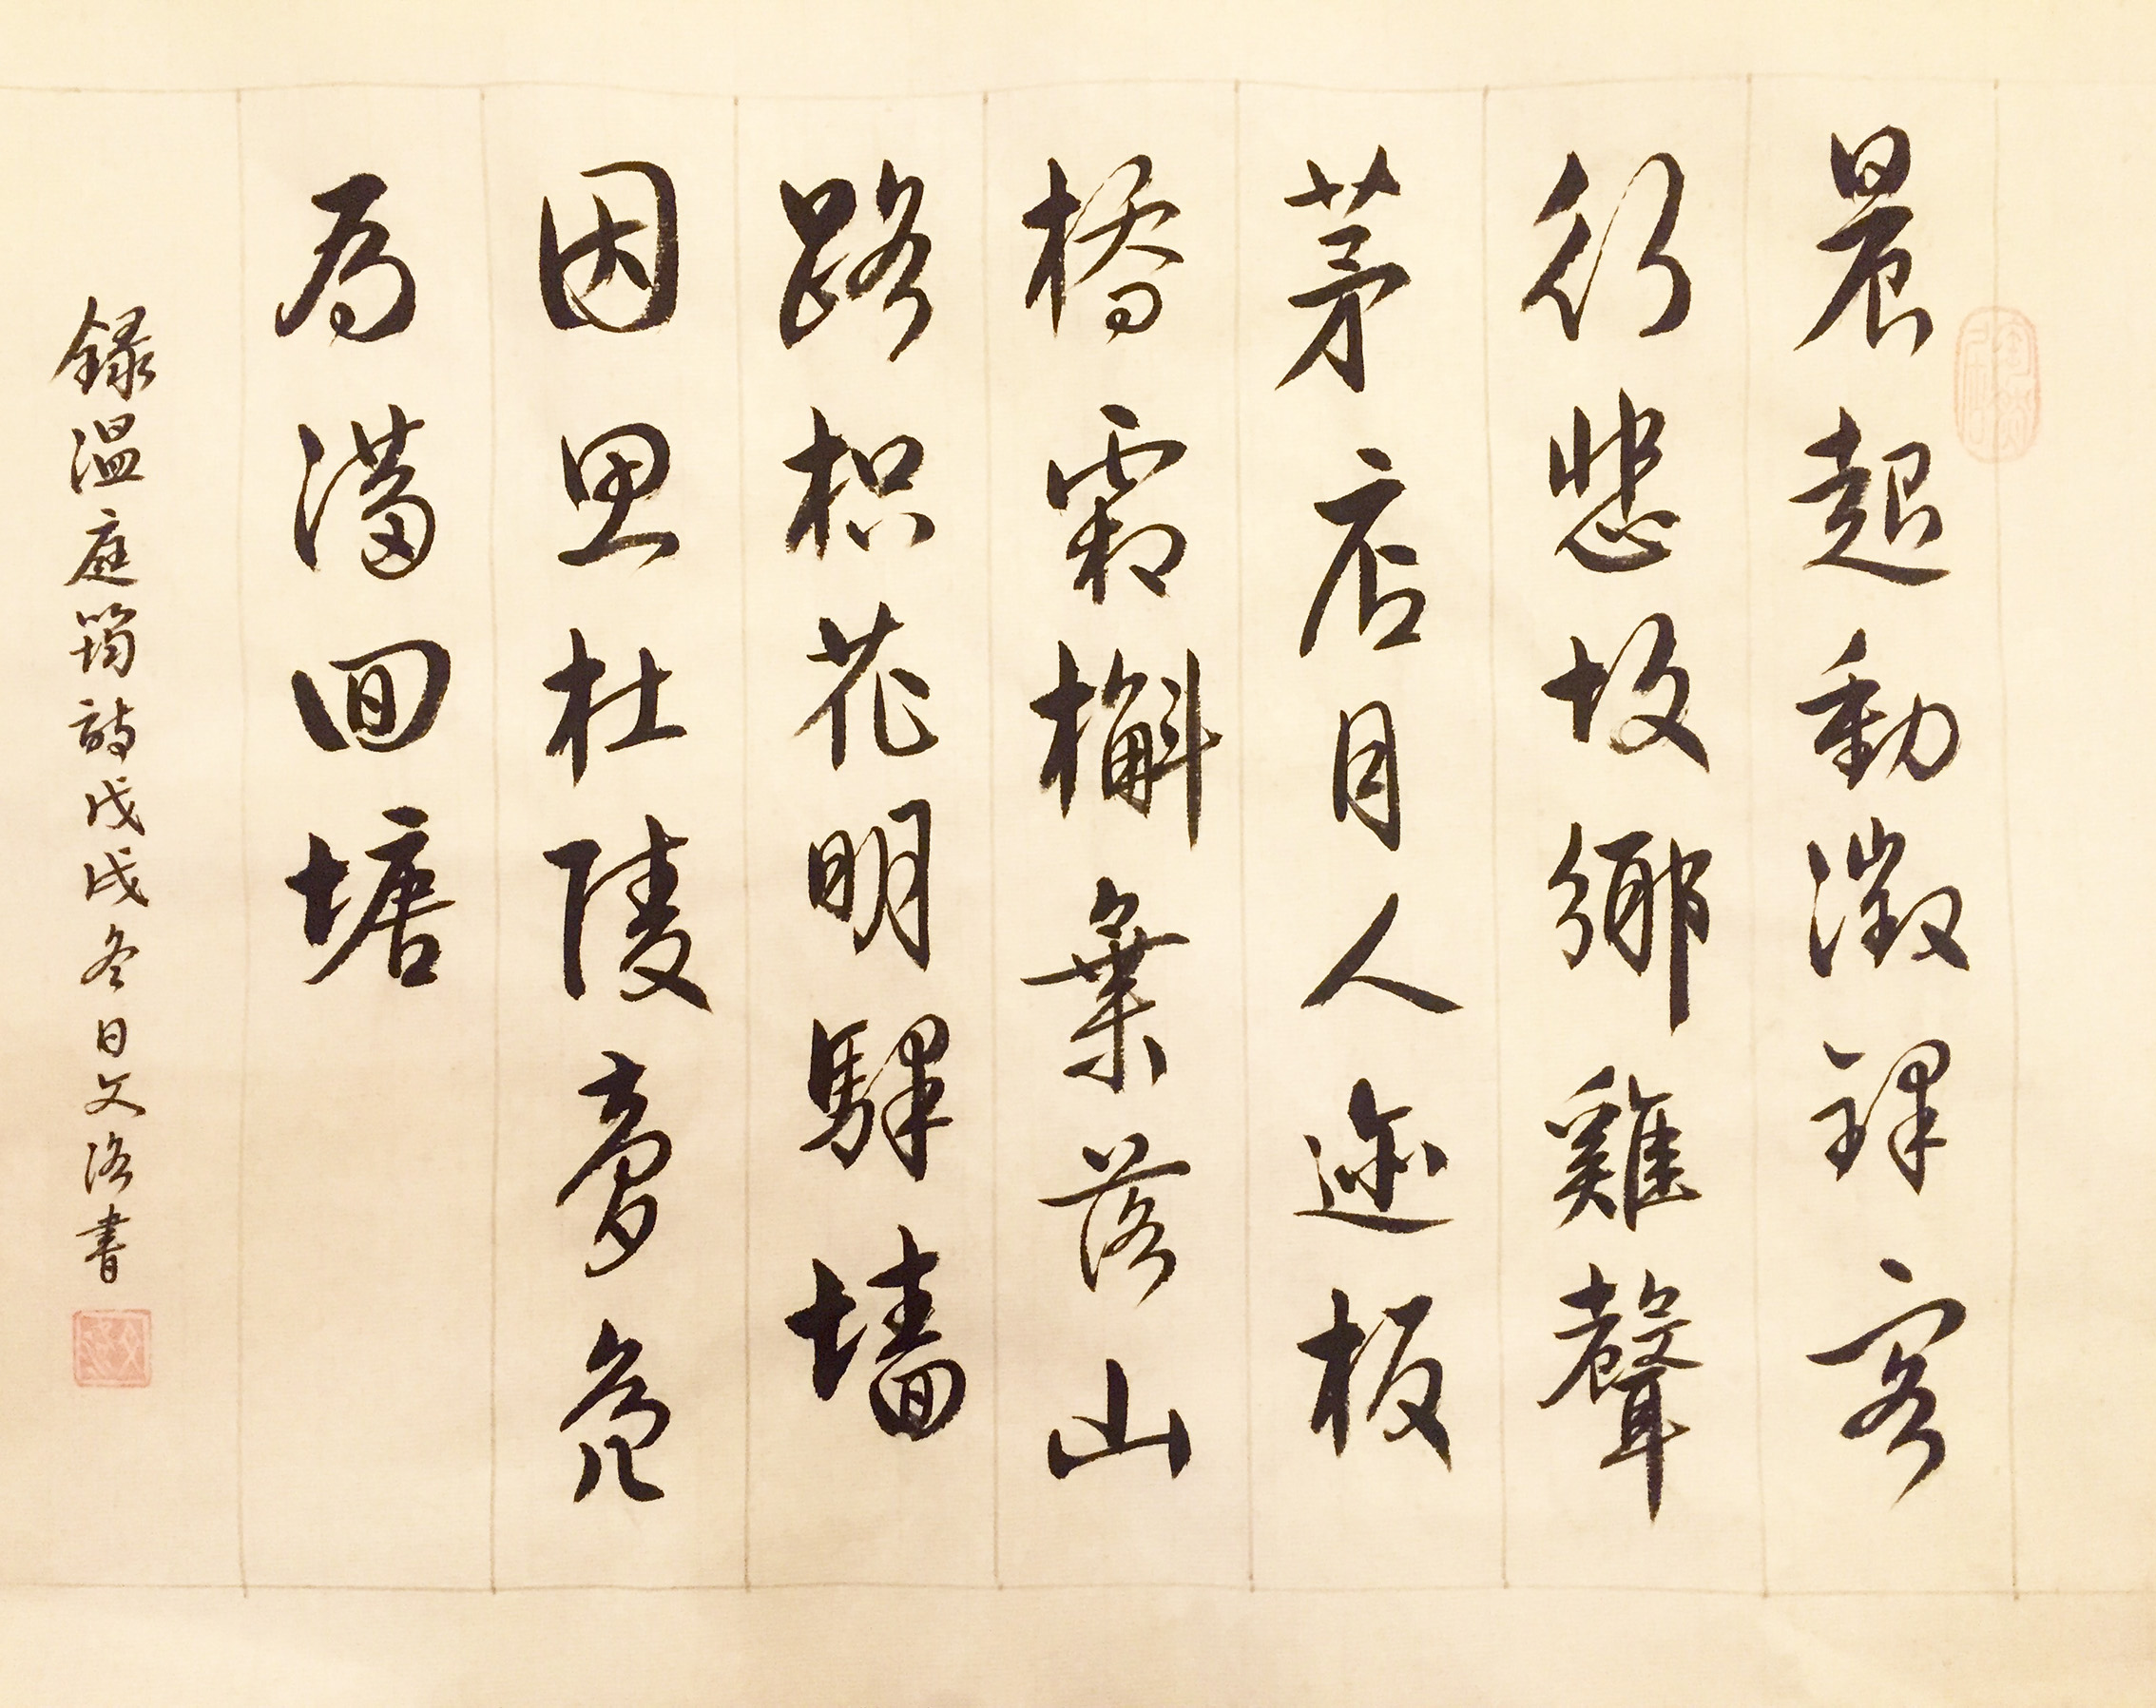 晨起動徵鐸客
行悲故鄉雞聲
茅店月人迹板
橋霜槲葉落山
路枳花明驛墻
因思杜陵夢鳧
雁滿回塘
錄溫庭筠詩戊戌冬日文洛書